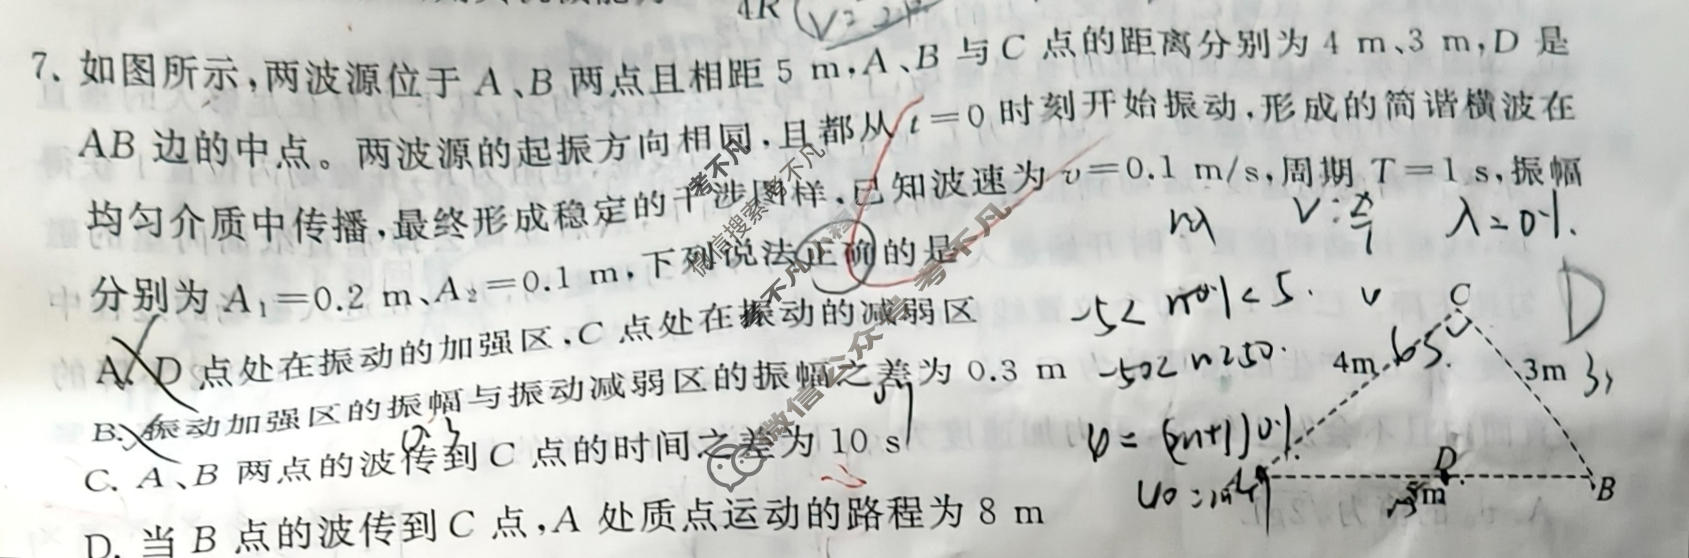 4R
7. 如图所示,两波源位于 A、B 两点且相距 5 m,A、B 与 C 点的距离分别为 4 m、3 m,D 是
AB 边的中点。两波源的起振方向相同,且都从 t=0 时刻开始振动,形成的简谐横波在
均匀介质中传播,最终形成稳定的干涉图样,已知波速为 v=0.1 m/s,周期 T=1 s,振幅
分别为 A₁=0.2 m、A₂=0.1 m,下列说法正确的是
A. D 点处在振动的加强区,C 点处在振动的减弱区
B. 振动加强区的振幅与振动减弱区的振幅之差为 0.3 m
C. A、B 两点的波传到 C 点的时间之差为 10 s
D. 当 B 点的波传到 C 点,A 处质点运动的路程为 8 m
nλ
λ=0.1.
-5< n0.1<5.
C
4m
3m
D
B
5m
D
0.3
微信搜索
考不凡
微信公众号:考不凡